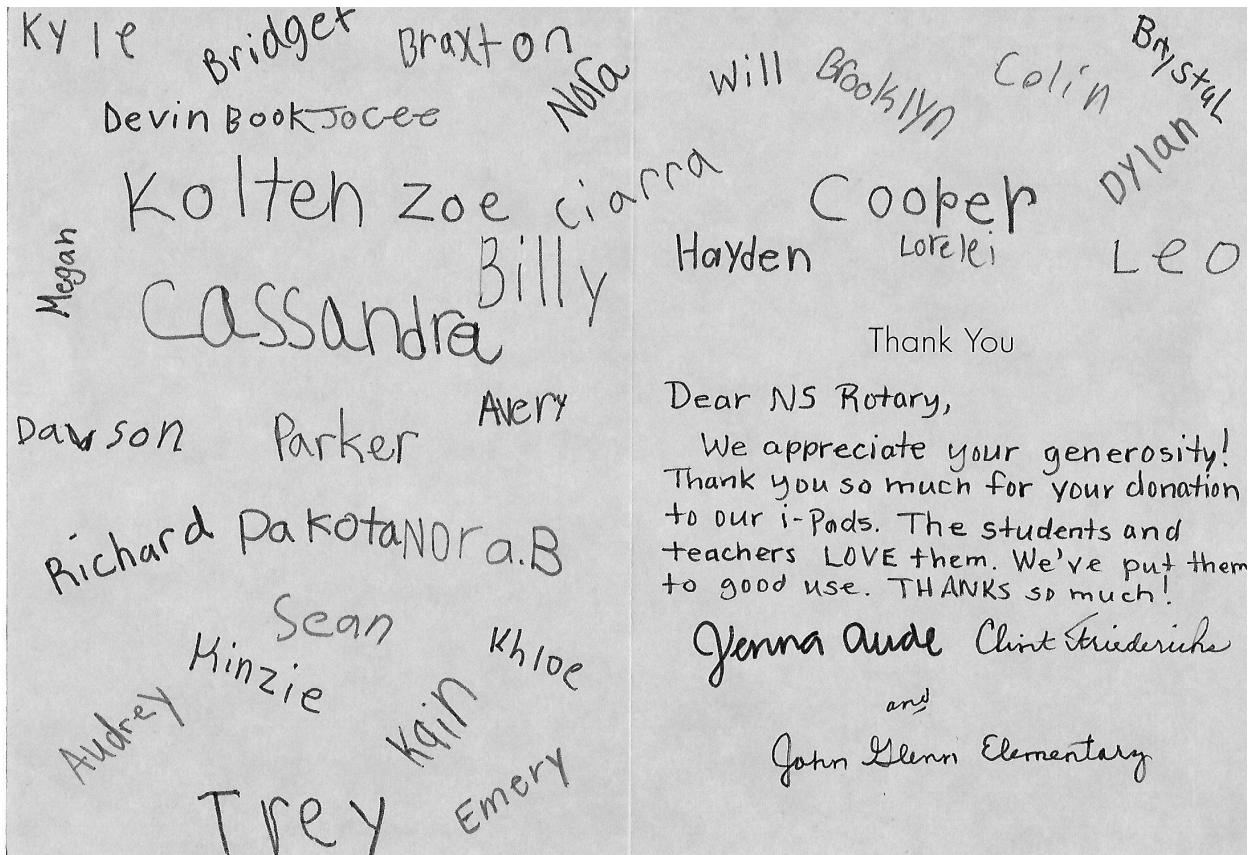 Kyle Bridget Braxton
Nora
Devin Book Jocee
Kolten Zoe Ciarra
Megan
Billy
Cassandra
Avery
Dawson Parker
Richard Dakota Nora.B
Sean
Kinzie Khloe
Audrey Kain
Trey Emery
Will Brooklyn Colin Brystal
Dylan
Cooper
Hayden Lorelei Leo
Thank You
Dear NS Rotary,
We appreciate your generosity!
Thank you so much for your donation
to our i-Pads. The students and
teachers LOVE them. We've put them
to good use. THANKS so much!
Jenna Aude Clint Friederichs
and
John Glenn Elementary